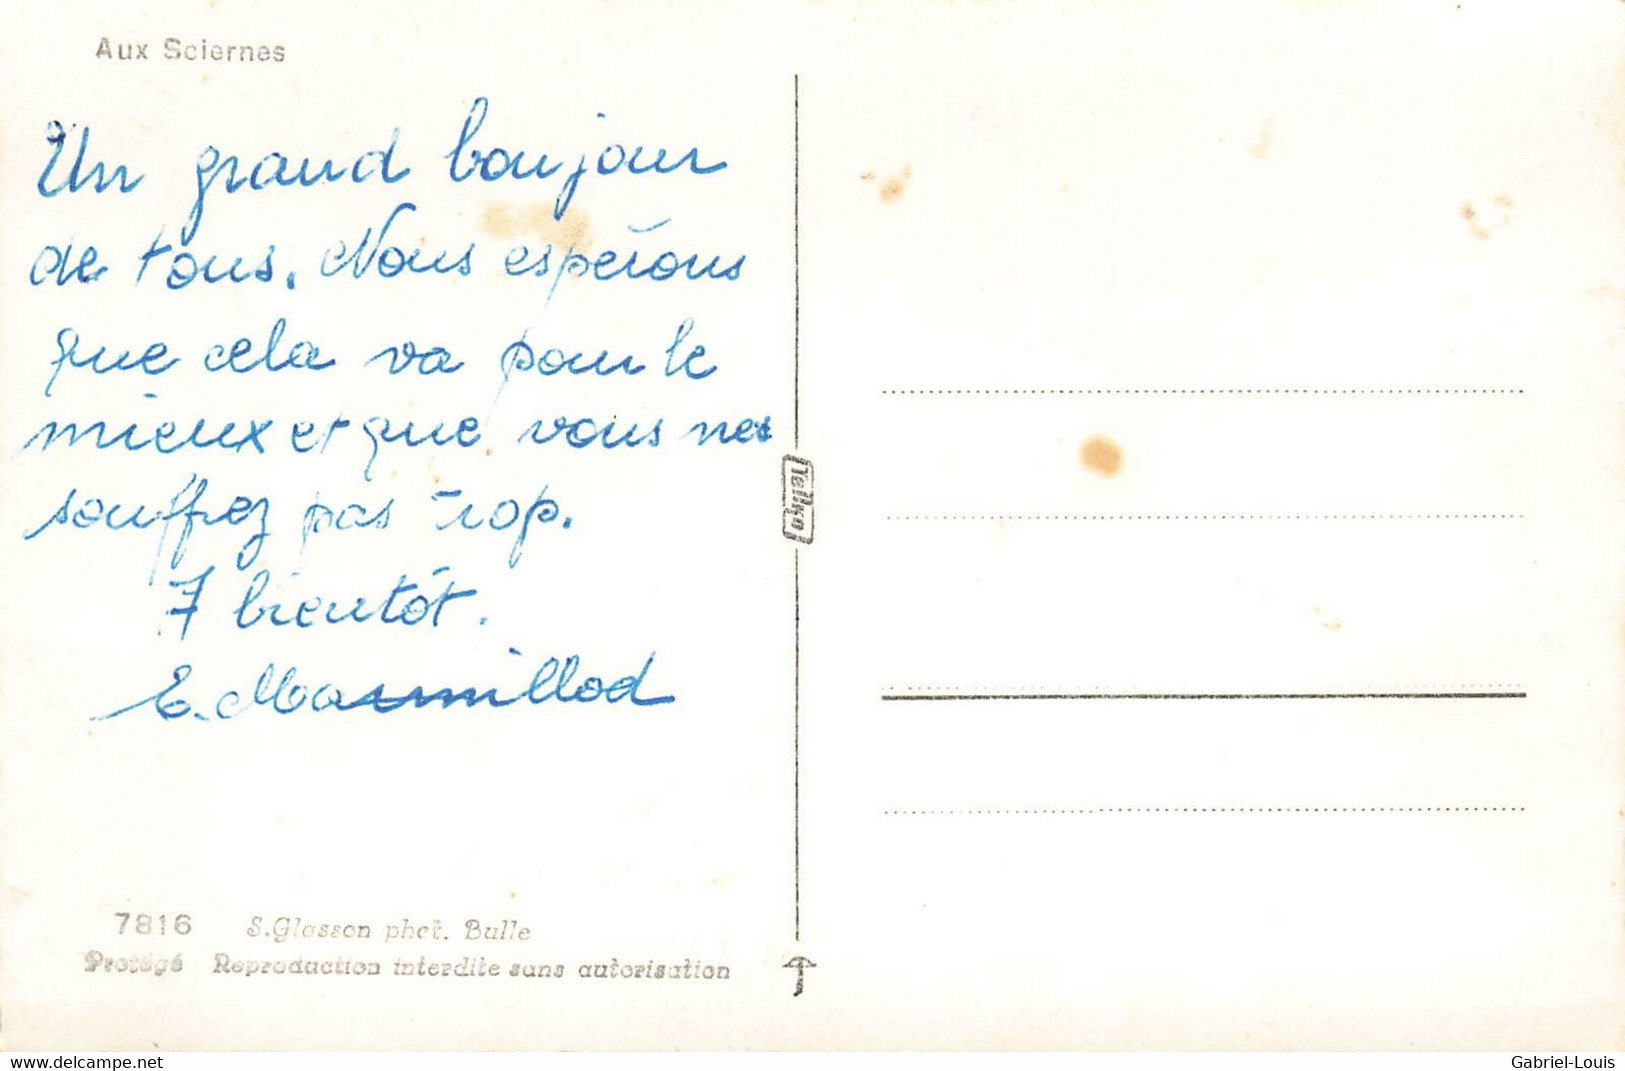 Aux Sciernes
Un grand bonjour
de tous. Nous espérons
que cela va pour le
mieux et que vous nes
souffrez pas trop.
A bientôt.
E. Marmillod
Tellko
7816 S. Glasson phot. Bulle
Protégé Reproduction interdite sans autorisation
www.delcampe.net
Gabriel-Louis